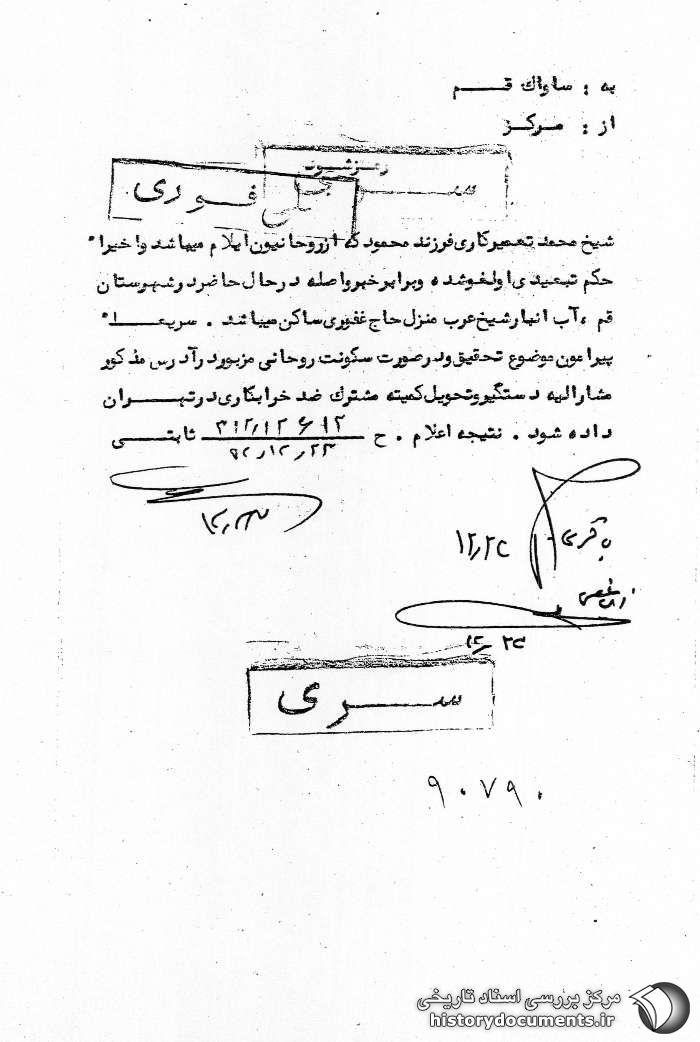 به : ساواك قــم
از : مركز
رمز شود
ســری
فــوری
شیخ محمد تعمیركاری فرزند محمود كه از روحانیون ایلام میباشد و اخیرا"
حكم تبعیدی او لغو شده و برابر خبر واصله در حال حاضر در شهرستان
قم ، آب انبار شیخ عرب منزل حاج غفوری ساكن میباشد . سریعـــا"
پیرامون موضوع تحقیق و در صورت سكونت روحانی مزبور در آدرس مذكور
مشارالیه دستگیر و تحویل كمیته مشترك ضد خرابكاری در تهــران
داده شود . نتیجه اعلام . ح ثابتــی
باقری
۱۲٫۲۴
ســــری
۹۰۷۹۰
مركز بررسی اسناد تاریخی
historydocuments.ir